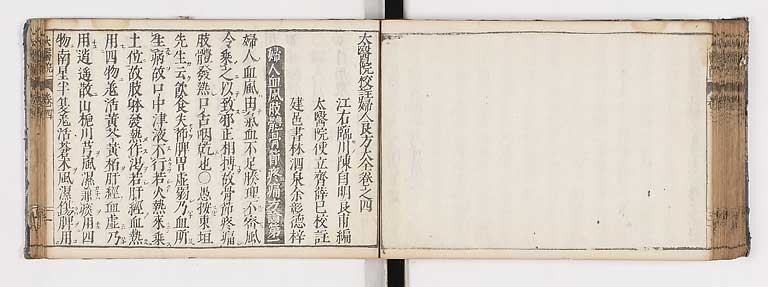 太醫院校註婦人良方大全卷之四
江右臨川陳自明良甫編
太醫院使立齋薛己校註
建邑書林泗泉余彰德梓
婦人血風肢骨脊疼痛方論第一
婦人血風由氣血不足腠理不密風
令乘之以致邪正相搏故骨節疼痛
肢體發熱口舌咽乾也○愚按東垣
先生云飲食失節脾胃虛弱乃血所
生病故口中津液不行若火熱來乘
土位故肢體發熱作渴若肝經血熱
用四物羌活黃芩黃柏肝經血虛乃
用逍遙散山梔川芎風濕兼痰用四
物南星半夏羌活蒼朮風濕傷脾用